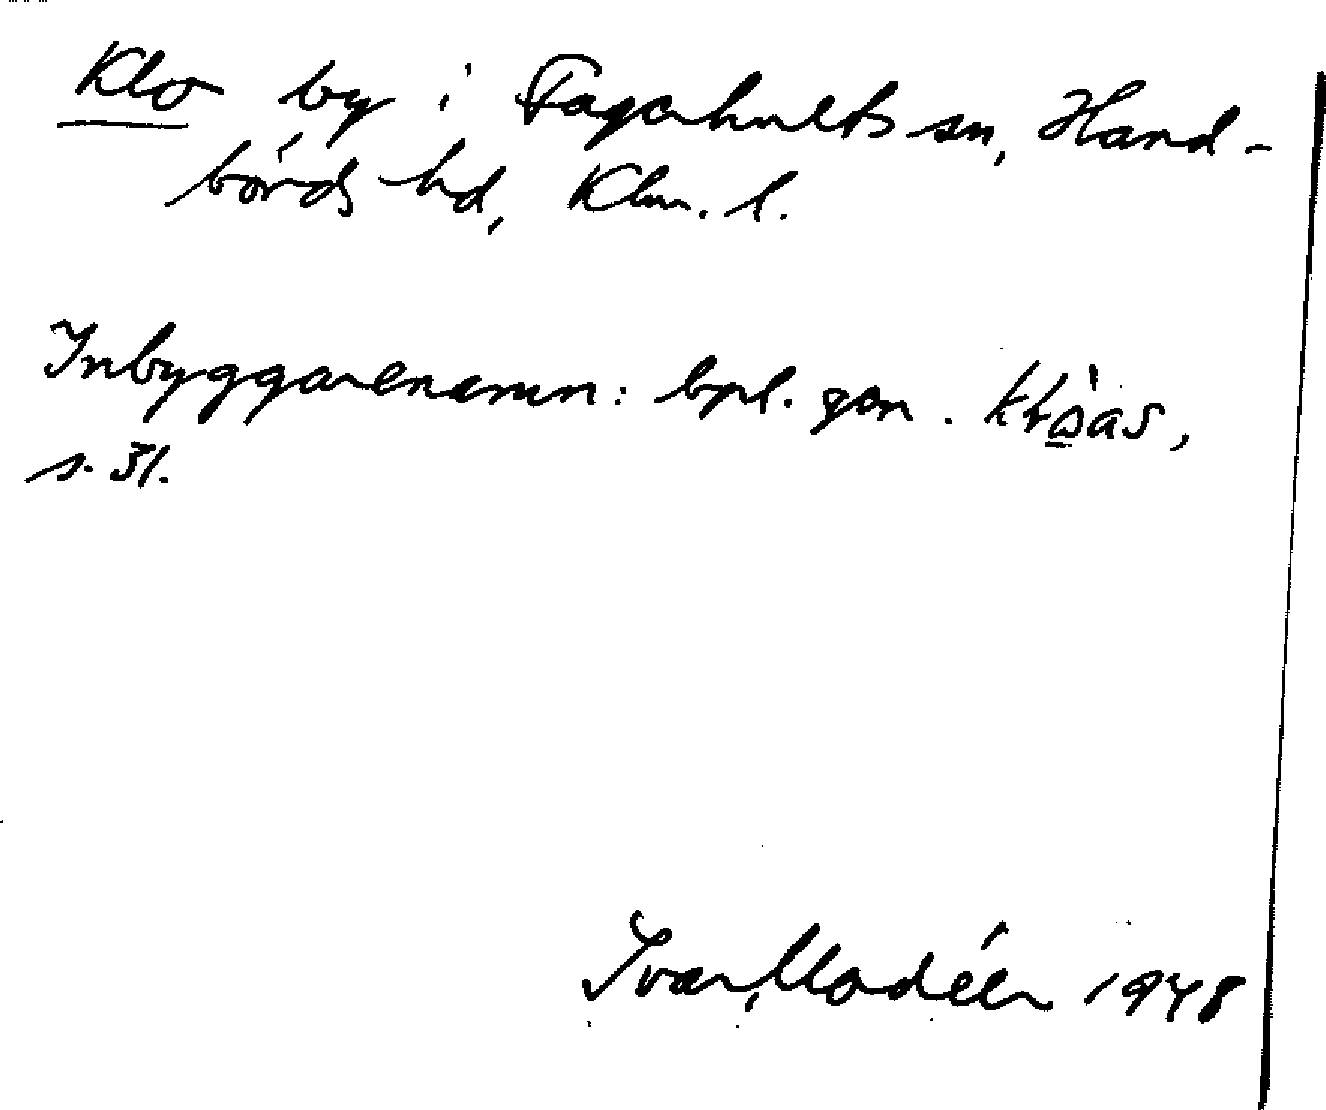 Klo by i Fagerhults sn, Hand-
börds hd, Klm. l.
Inbyggarenamn: bpl. gen.
s. 31.
Ivar Modéer 1948